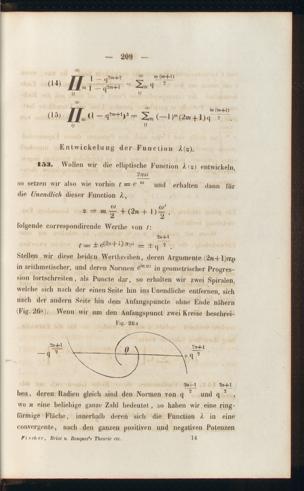 — 209 —
(14) ∏ (1 − q^{2m+2})/(1 − q^{2m+1}) = ∑ q^{m(m+1)/2}
(15) ∏ (1 − q^{2m+1})³ = ∑ (−1)^m (2m+1) q^{m(m+1)/2} .
Entwickelung der Function λ(z).
153. Wollen wir die elliptische Function λ(z) entwickeln,
so setzen wir also wie vorhin t = e^{2πzi/ω} und erhalten dann für
die Unendlich dieser Function λ,
z = m ω/2 + (2n + 1) ω'/2 ,
folgende correspondirende Werthe von t:
t = ± e^{(2n+1)πρi} = ± q^{(2n+1)/2} .
Stellen wir diese beiden Werthreihen, deren Argumente (2n+1)πρ
in arithmetischer, und deren Normen in geometrischer Progres-
sion fortschreiten, als Puncte dar, so erhalten wir zwei Spiralen,
welche sich nach der einen Seite hin ins Unendliche entfernen, sich
nach der andern Seite hin dem Anfangspuncte ohne Ende nähern
(Fig. 26a). Wenn wir um den Anfangspunct zwei Kreise beschrei-
Fig. 26a
−q^{(2n+1)/2} 0 +q^{(2n+1)/2}
ben, deren Radien gleich sind den Normen von q^{(2n−1)/2} und q^{(2n+1)/2},
wo n eine beliebige ganze Zahl bedeutet, so haben wir eine ring-
förmige Fläche, innerhalb deren sich die Function λ in eine
convergente, nach den ganzen positiven und negativen Potenzen
Fischer, Briot u. Bouquet's Theorie etc. 14